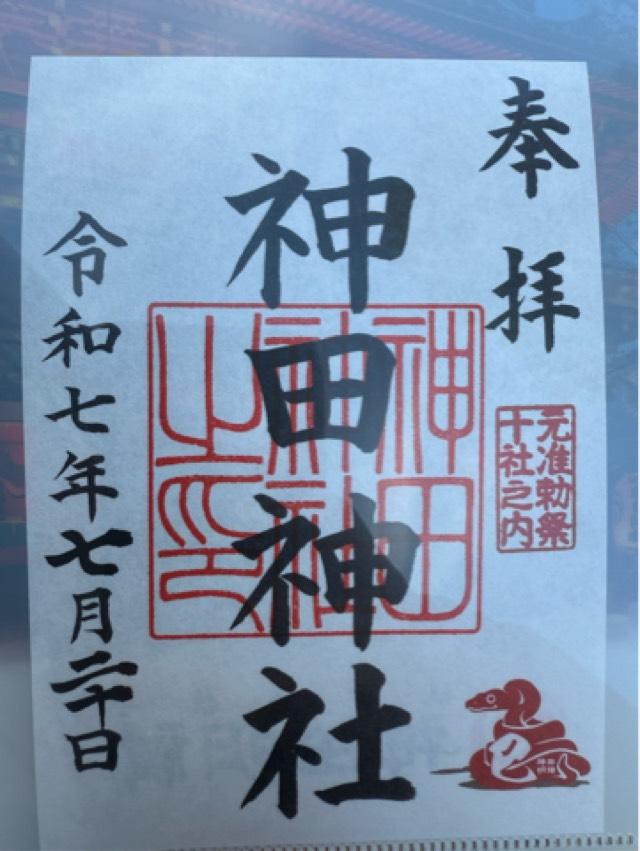 奉拝
元准勅祭
十社之内
神田神社
神田
神社
之印
令和七年七月二十日
巳